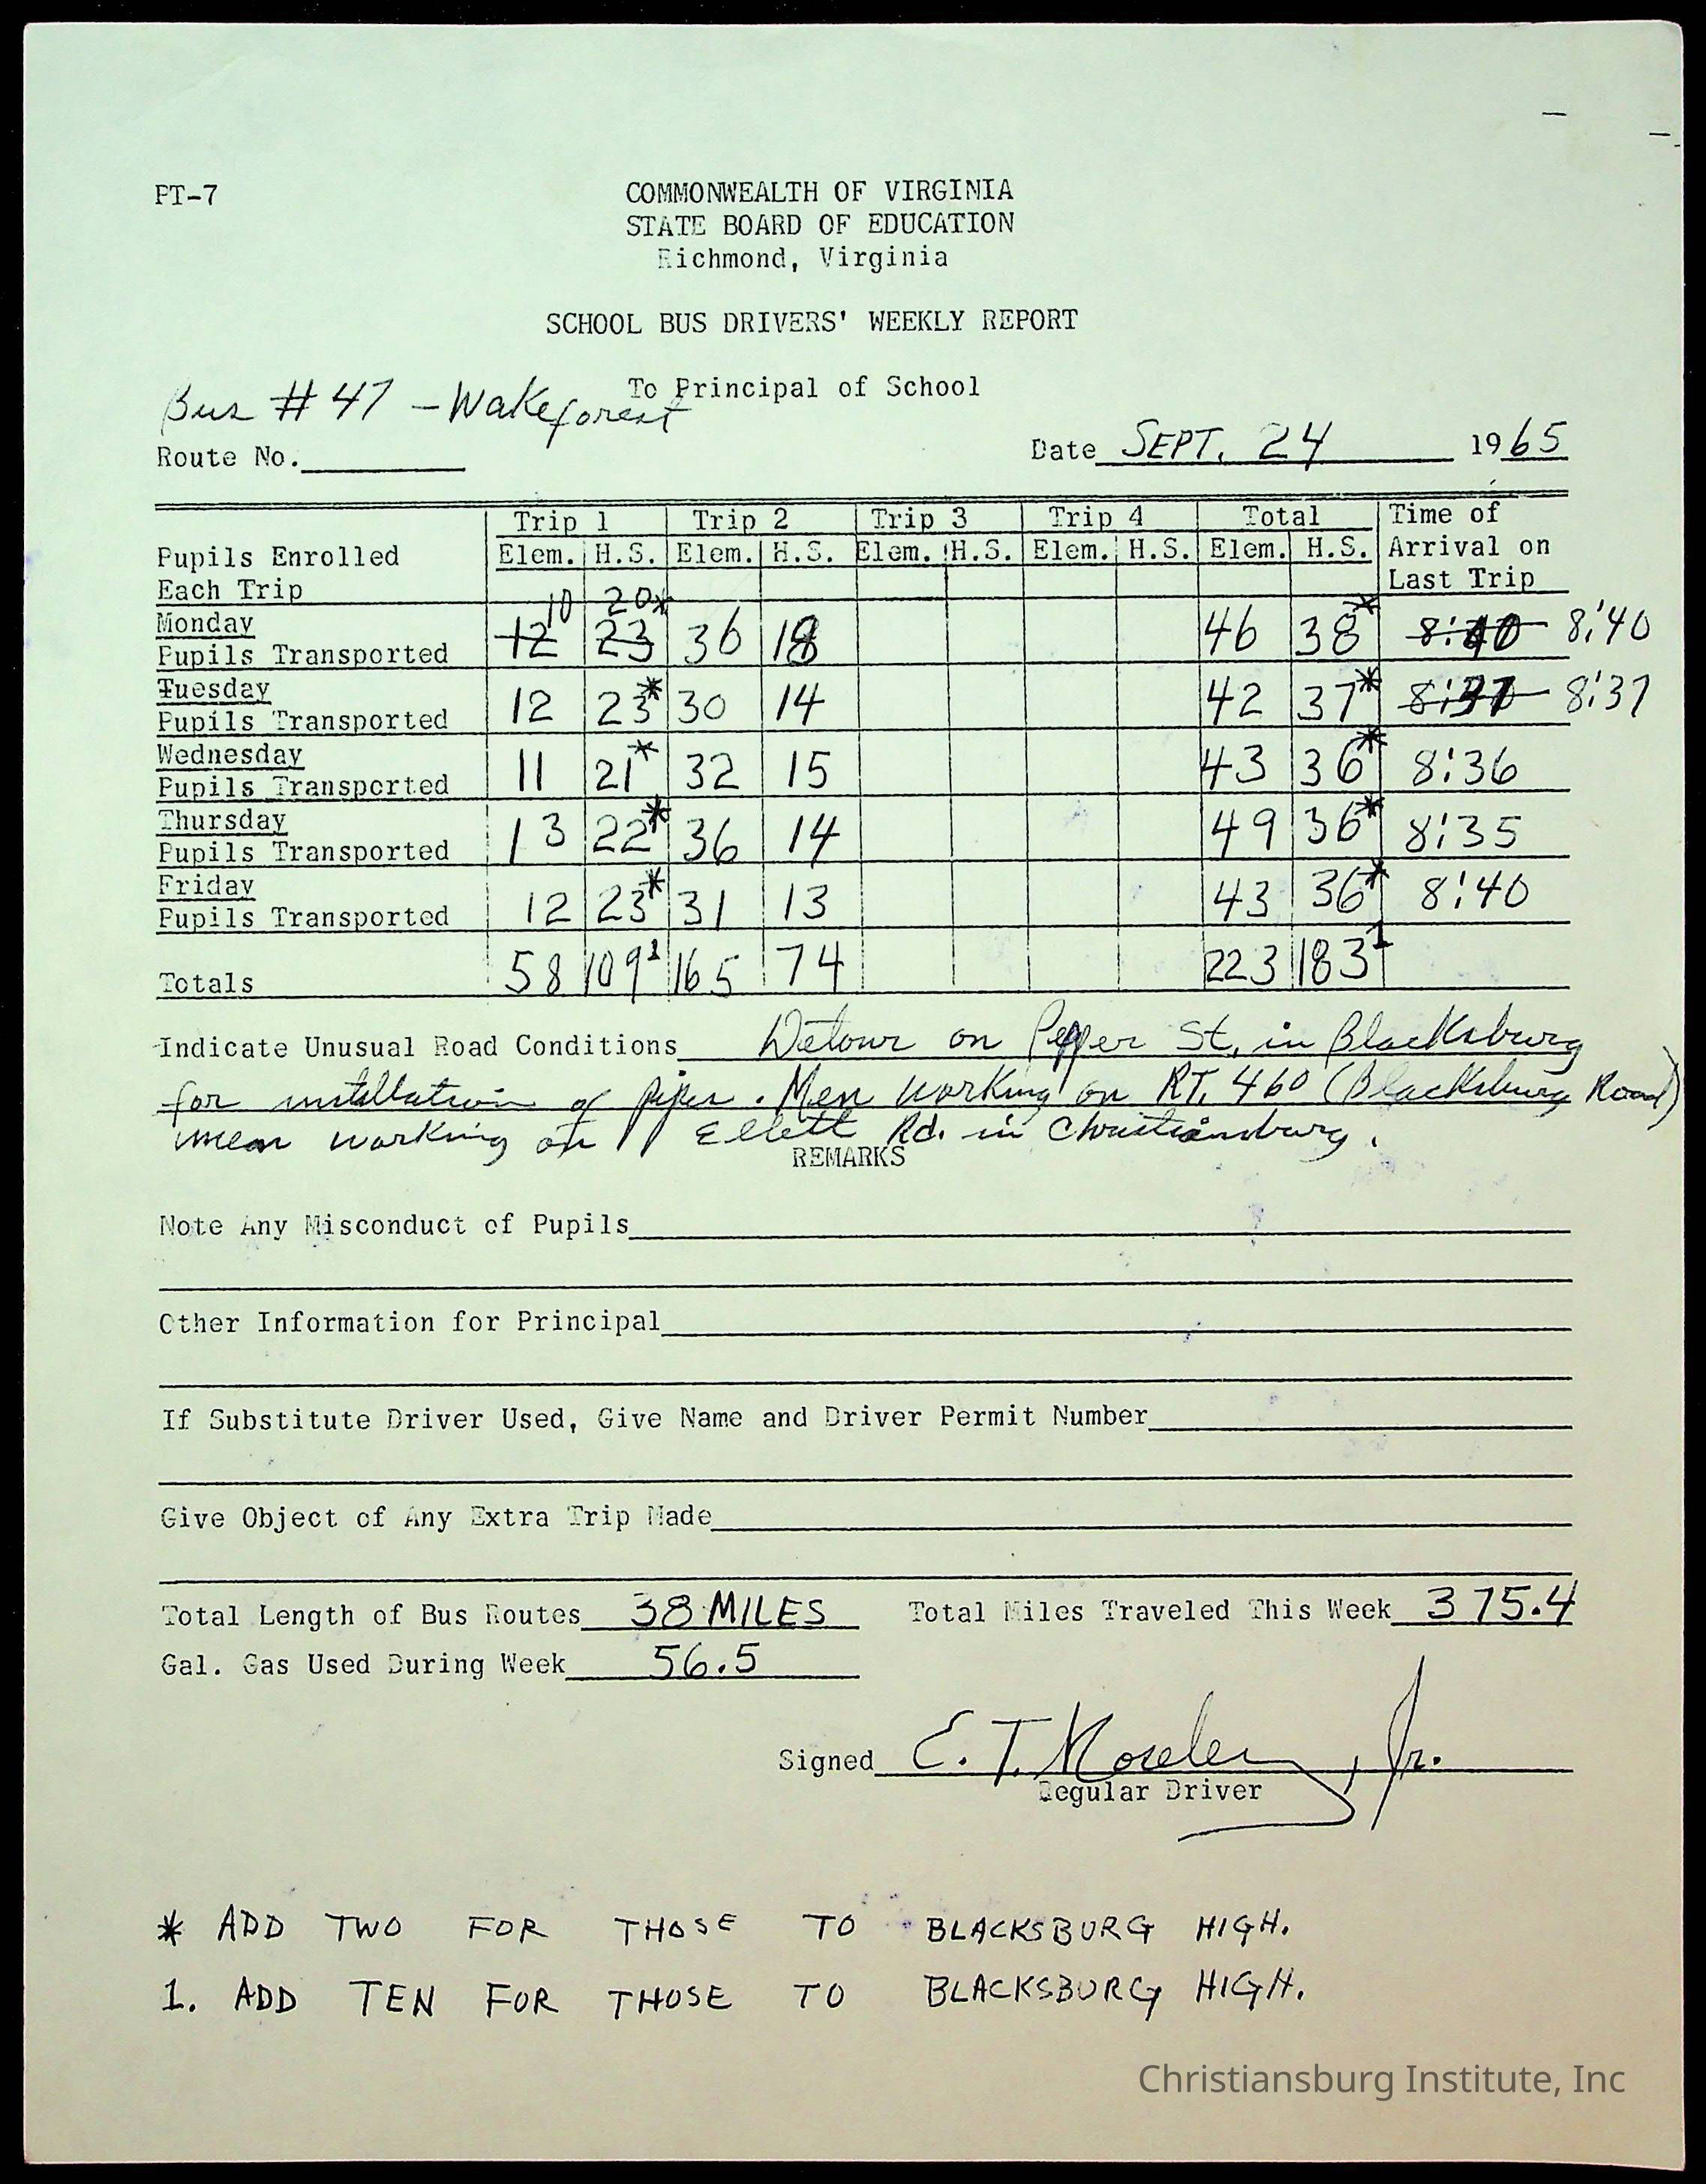 PT-7
COMMONWEALTH OF VIRGINIA
STATE BOARD OF EDUCATION
Richmond, Virginia
SCHOOL BUS DRIVERS' WEEKLY REPORT
To Principal of School
Bus # 47 - Wakeforest
Route No. Date SEPT. 24 1965
Trip 1 Trip 2 Trip 3 Trip 4 Total Time of
Pupils Enrolled Elem. H.S. Elem. H.S. Elem. H.S. Elem. H.S. Elem. H.S. Arrival on
Each Trip Last Trip
10 20*
Monday
Pupils Transported 12 23 36 18 46 38* 8:40 8:40
Tuesday
Pupils Transported 12 23* 30 14 42 37* 8:37 8:37
Wednesday
Pupils Transported 11 21* 32 15 43 36* 8:36
Thursday
Pupils Transported 13 22* 36 14 49 36* 8:35
Friday
Pupils Transported 12 23* 31 13 43 36* 8:40
Totals 58 109¹ 165 74 223 183¹
Indicate Unusual Road Conditions Detour on Pepper St, in Blacksburg
for installation of pipes. Men working on RT. 460 (Blacksburg Road)
men working on Ellett Rd. in Christiansburg.
REMARKS
Note Any Misconduct of Pupils
Other Information for Principal
If Substitute Driver Used, Give Name and Driver Permit Number
Give Object of Any Extra Trip Made
Total Length of Bus Routes 38 MILES Total Miles Traveled This Week 375.4
Gal. Gas Used During Week 56.5
Signed E. T. Moseley, Jr.
Regular Driver
* ADD TWO FOR THOSE TO BLACKSBURG HIGH.
1. ADD TEN FOR THOSE TO BLACKSBURG HIGH.
Christiansburg Institute, Inc